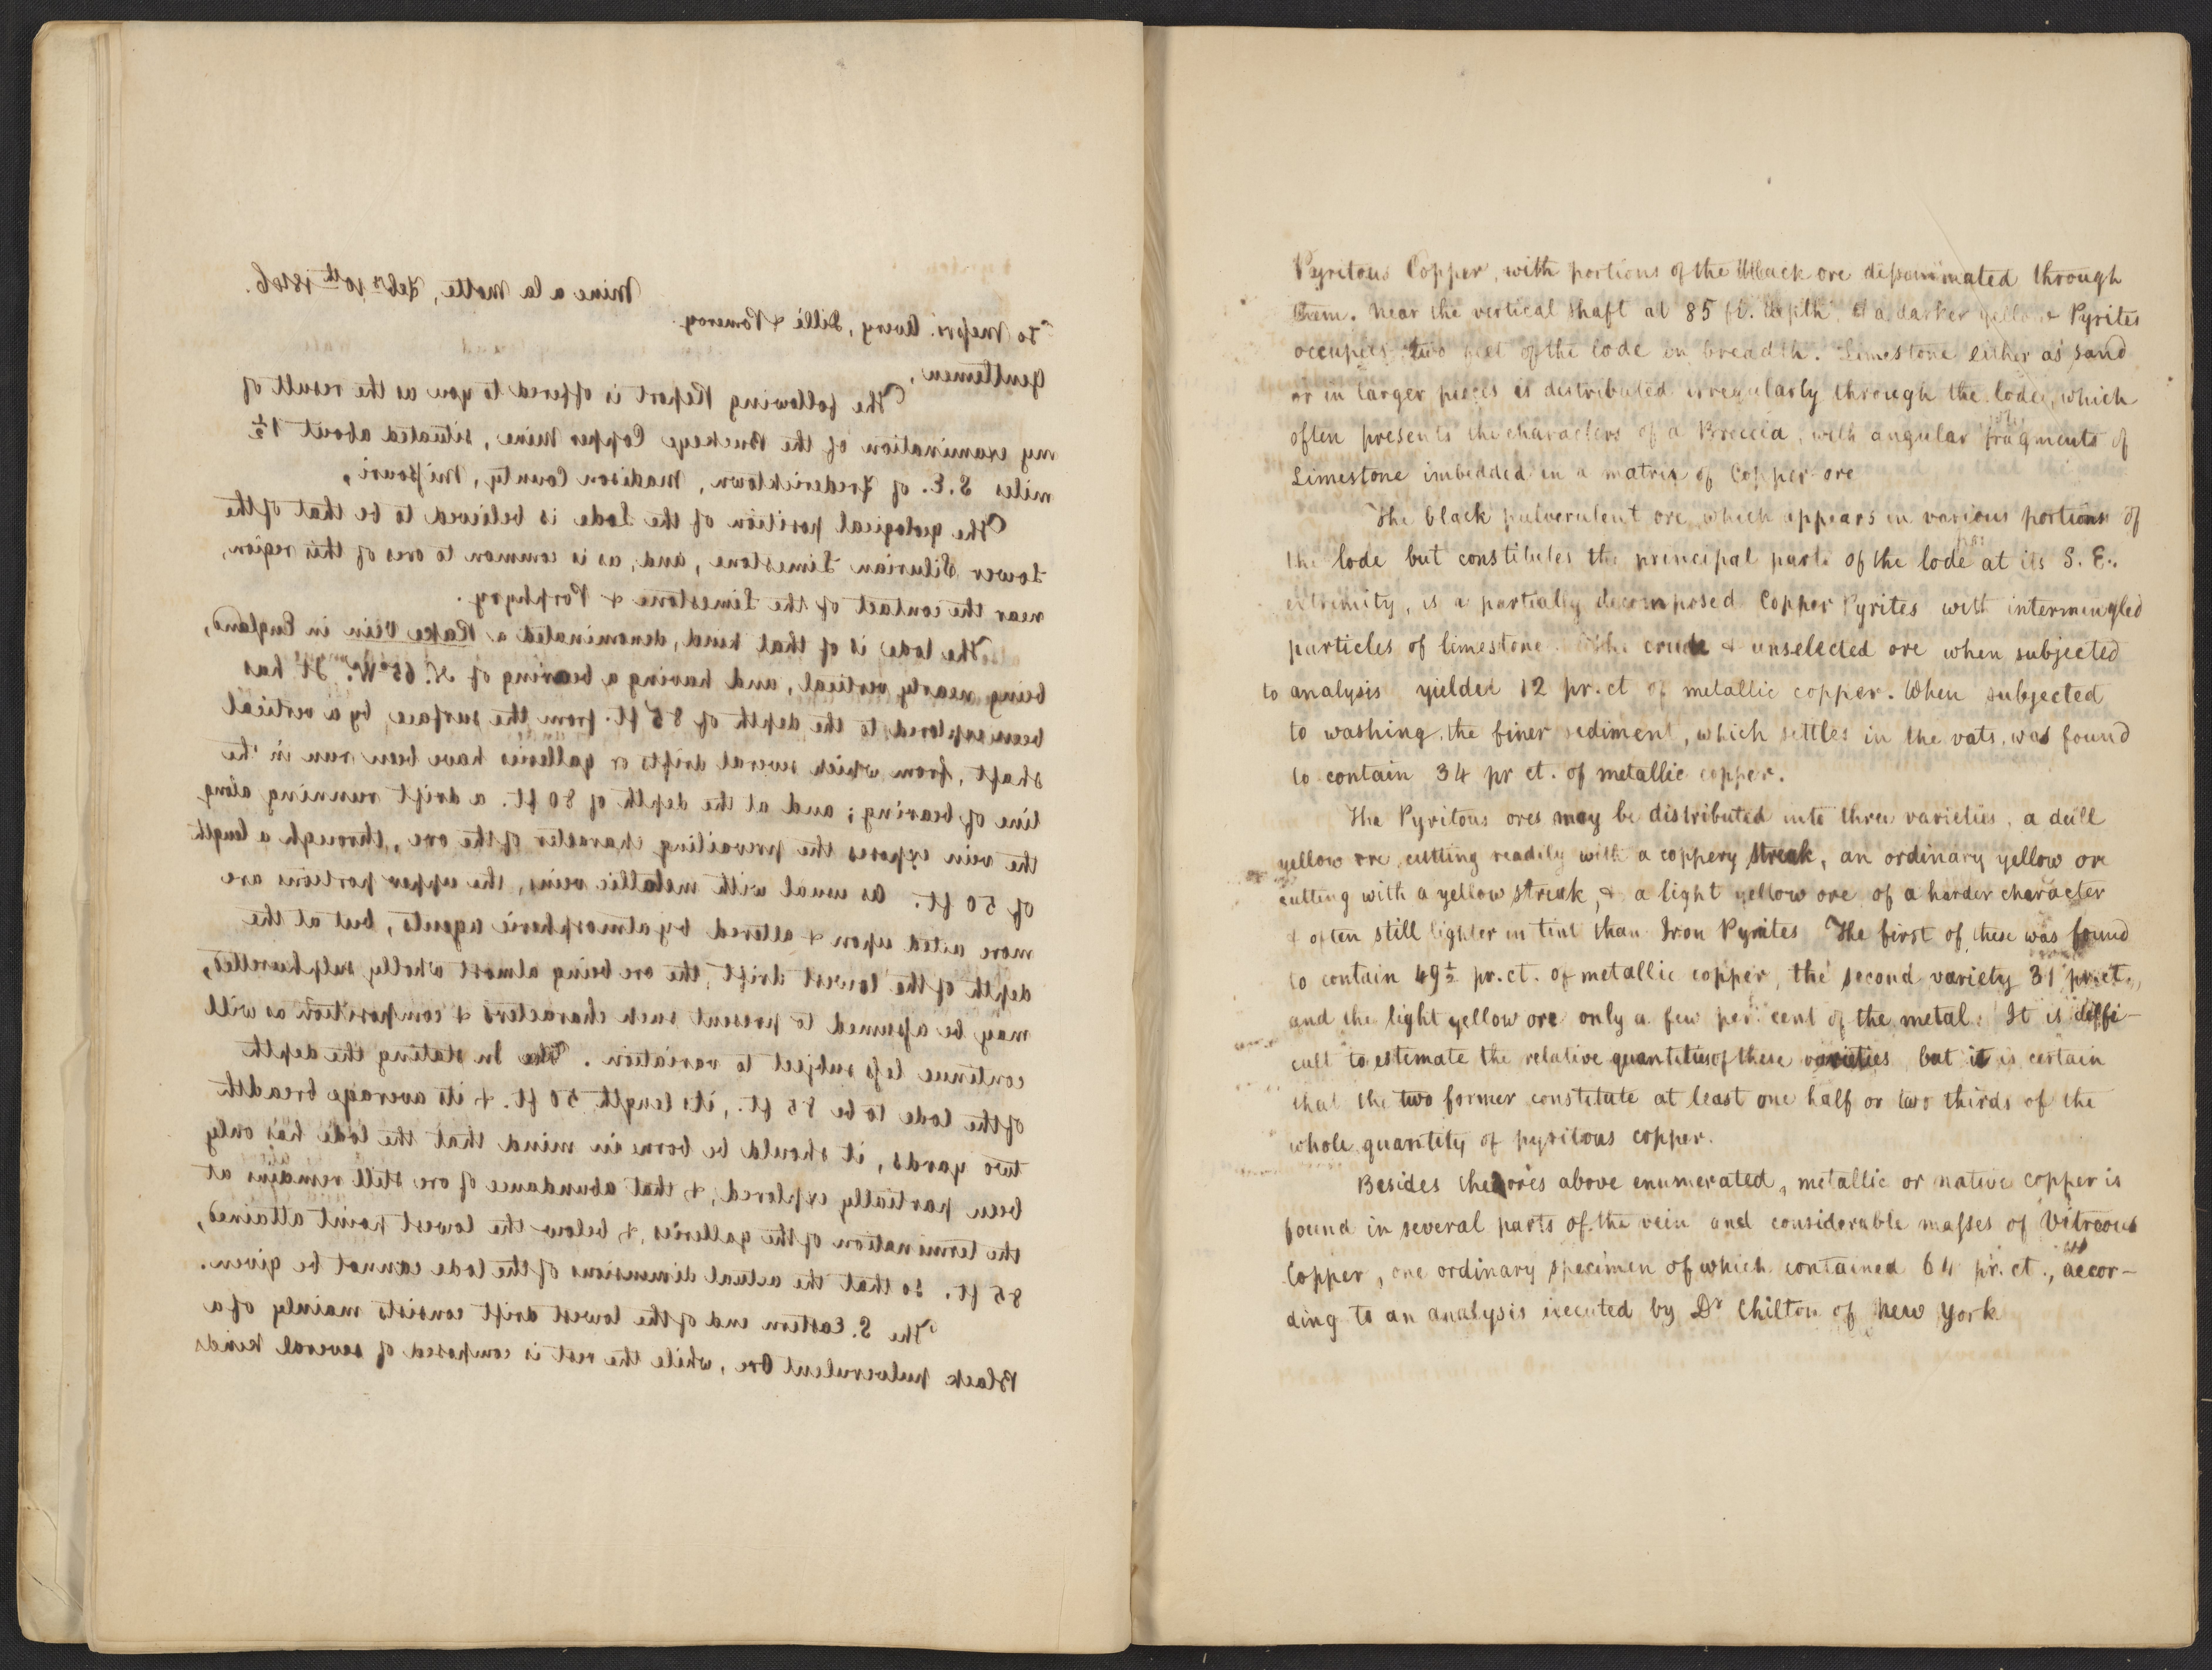 Mine a la Motte, Feby 10th 1846.
To Messrs. Avery, Lillé & Pomeroy.
Gentlemen,
The following Report is offered to you as the result of
my examination of the Buckeye Copper Mine, situated about 1½
miles S.E. of Fredericktown, Madison County, Missouri,
The geological position of the Lode is believed to be that of the
Lower Silurian Limestone, and, as is common to ores of this region,
near the contact of the Limestone & Porphyry.
The lode is of that kind, denominated a Rake Vein in England,
being nearly vertical, and having a bearing of N. 65° W. It has
been explored to the depth of 85 ft. from the surface by a vertical
shaft, from which several drifts or galleries have been run in the
line of bearing; and at the depth of 80 ft. a drift running along
the vein exposes the prevailing character of the ore, through a length
of 50 ft. As usual with metallic veins, the upper portions are
more acted upon & altered by atmospheric agents, but at the
depth of the lowest drift, the ore being almost wholly sulphuretted,
may be assumed to present such characters & composition as will
continue less subject to variation. The In stating the depth
of the lode to be 85 ft., its length 50 ft. & its average breadth
two yards, it should be borne in mind that the lode has only
been partially explored, & that abundance of ore still remains at
the termination of the galleries, & below the lowest point attained,
85 ft. so that the actual dimensions of the lode cannot be given.
The S. Eastern end of the lowest drift consists mainly of a
Black pulverulent Ore, while the rest is composed of several kinds
Pyritous Copper, with portions of the black ore disseminated through
them. Near the vertical shaft at 85 ft. depth a darker yellow Pyrites
occupies two feet of the lode in breadth. Limestone either as sand
or in larger pieces is distributed irregularly through the lode, which
often presents the characters of a Breccia, with angular fragments of
Limestone imbedded in a matrix of Copper-ore
The black pulverulent ore, which appears in various portions of
the lode but constitutes the principal part of the lode at its S. E.
extremity, is a partially decomposed Copper Pyrites with intermingled
particles of limestone. The crude & unselected ore when subjected
to analysis yielded 12 pr. ct of metallic copper. When subjected
to washing, the finer sediment, which settles in the vats, was found
to contain 34 pr ct. of metallic copper.
The Pyritous ores may be distributed into three varieties, a dull
yellow ore, cutting readily with a coppery streak, an ordinary yellow ore
cutting with a yellow streak, & a light yellow ore of a harder character
& often still lighter in tint than Iron Pyrites The first of these was found
to contain 49½ pr. ct. of metallic copper, the second variety 31 pr. ct.,
and the light yellow ore only a few per cent of the metal. It is diffi-
cult to estimate the relative quantities of these varieties, but it is certain
that the two former constitute at least one half or two thirds of the
whole quantity of pyritous copper.
Besides the ores above enumerated, metallic or native copper is
found in several parts of the vein and considerable masses of Vitreous
Copper, one ordinary specimen of which contained 64 pr. ct., accor-
ding to an analysis executed by Dr Chilton of New York